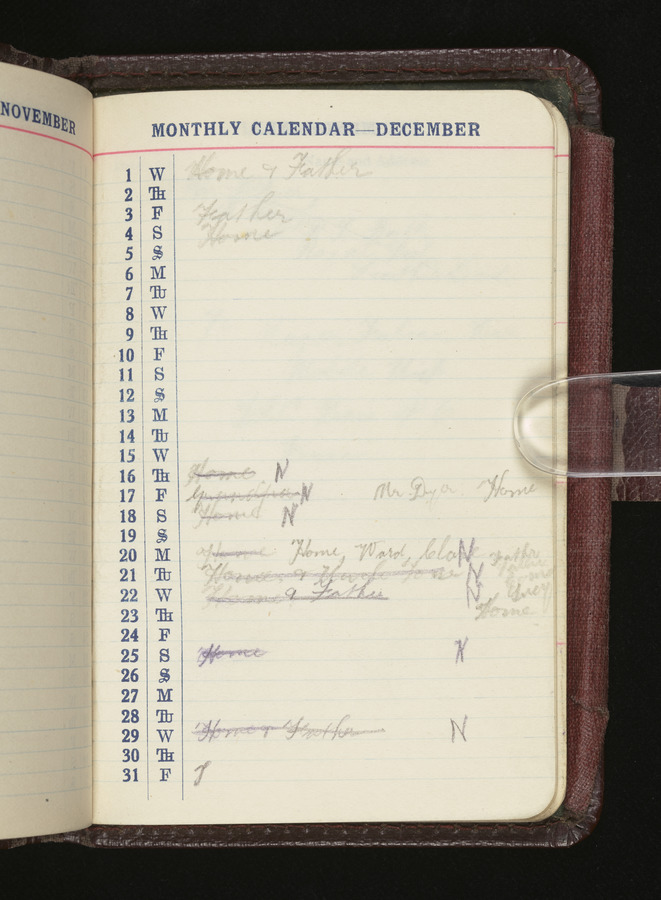 NOVEMBER
MONTHLY CALENDAR—DECEMBER
1 W Home & Father
2 Th
3 F Father
4 S Home
5 S
6 M
7 Tu
8 W
9 Th
10 F
11 S
12 S
13 M
14 Tu
15 W
16 Th Home N
17 F Grandpa N Mr. Dyer Home
18 S Home N
19 S
20 M Home Home, Ward, N Father
21 Tu Home & N
22 W Home & Father N
23 Th Home
24 F
25 S Home N
26 S
27 M
28 Tu
29 W Home & Father N
30 Th
31 F